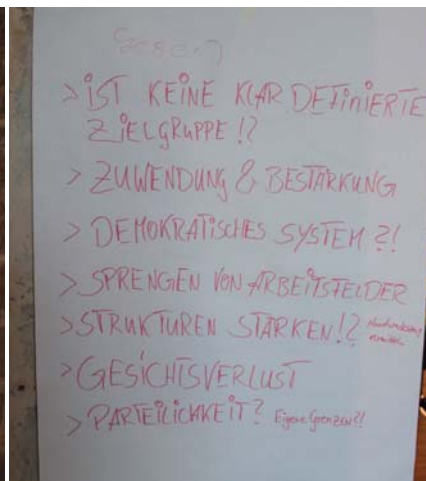 > IST KEINE KLAR DEFINIERTE
ZIELGRUPPE!?
> ZUWENDUNG & BESTÄRKUNG
> DEMOKRATISCHES SYSTEM?!
> SPRENGEN VON ARBEITSFELDER
> STRUKTUREN STÄRKEN!?
> GESICHTSVERLUST
> PARTEILICHKEIT? Eigene Grenzen?!